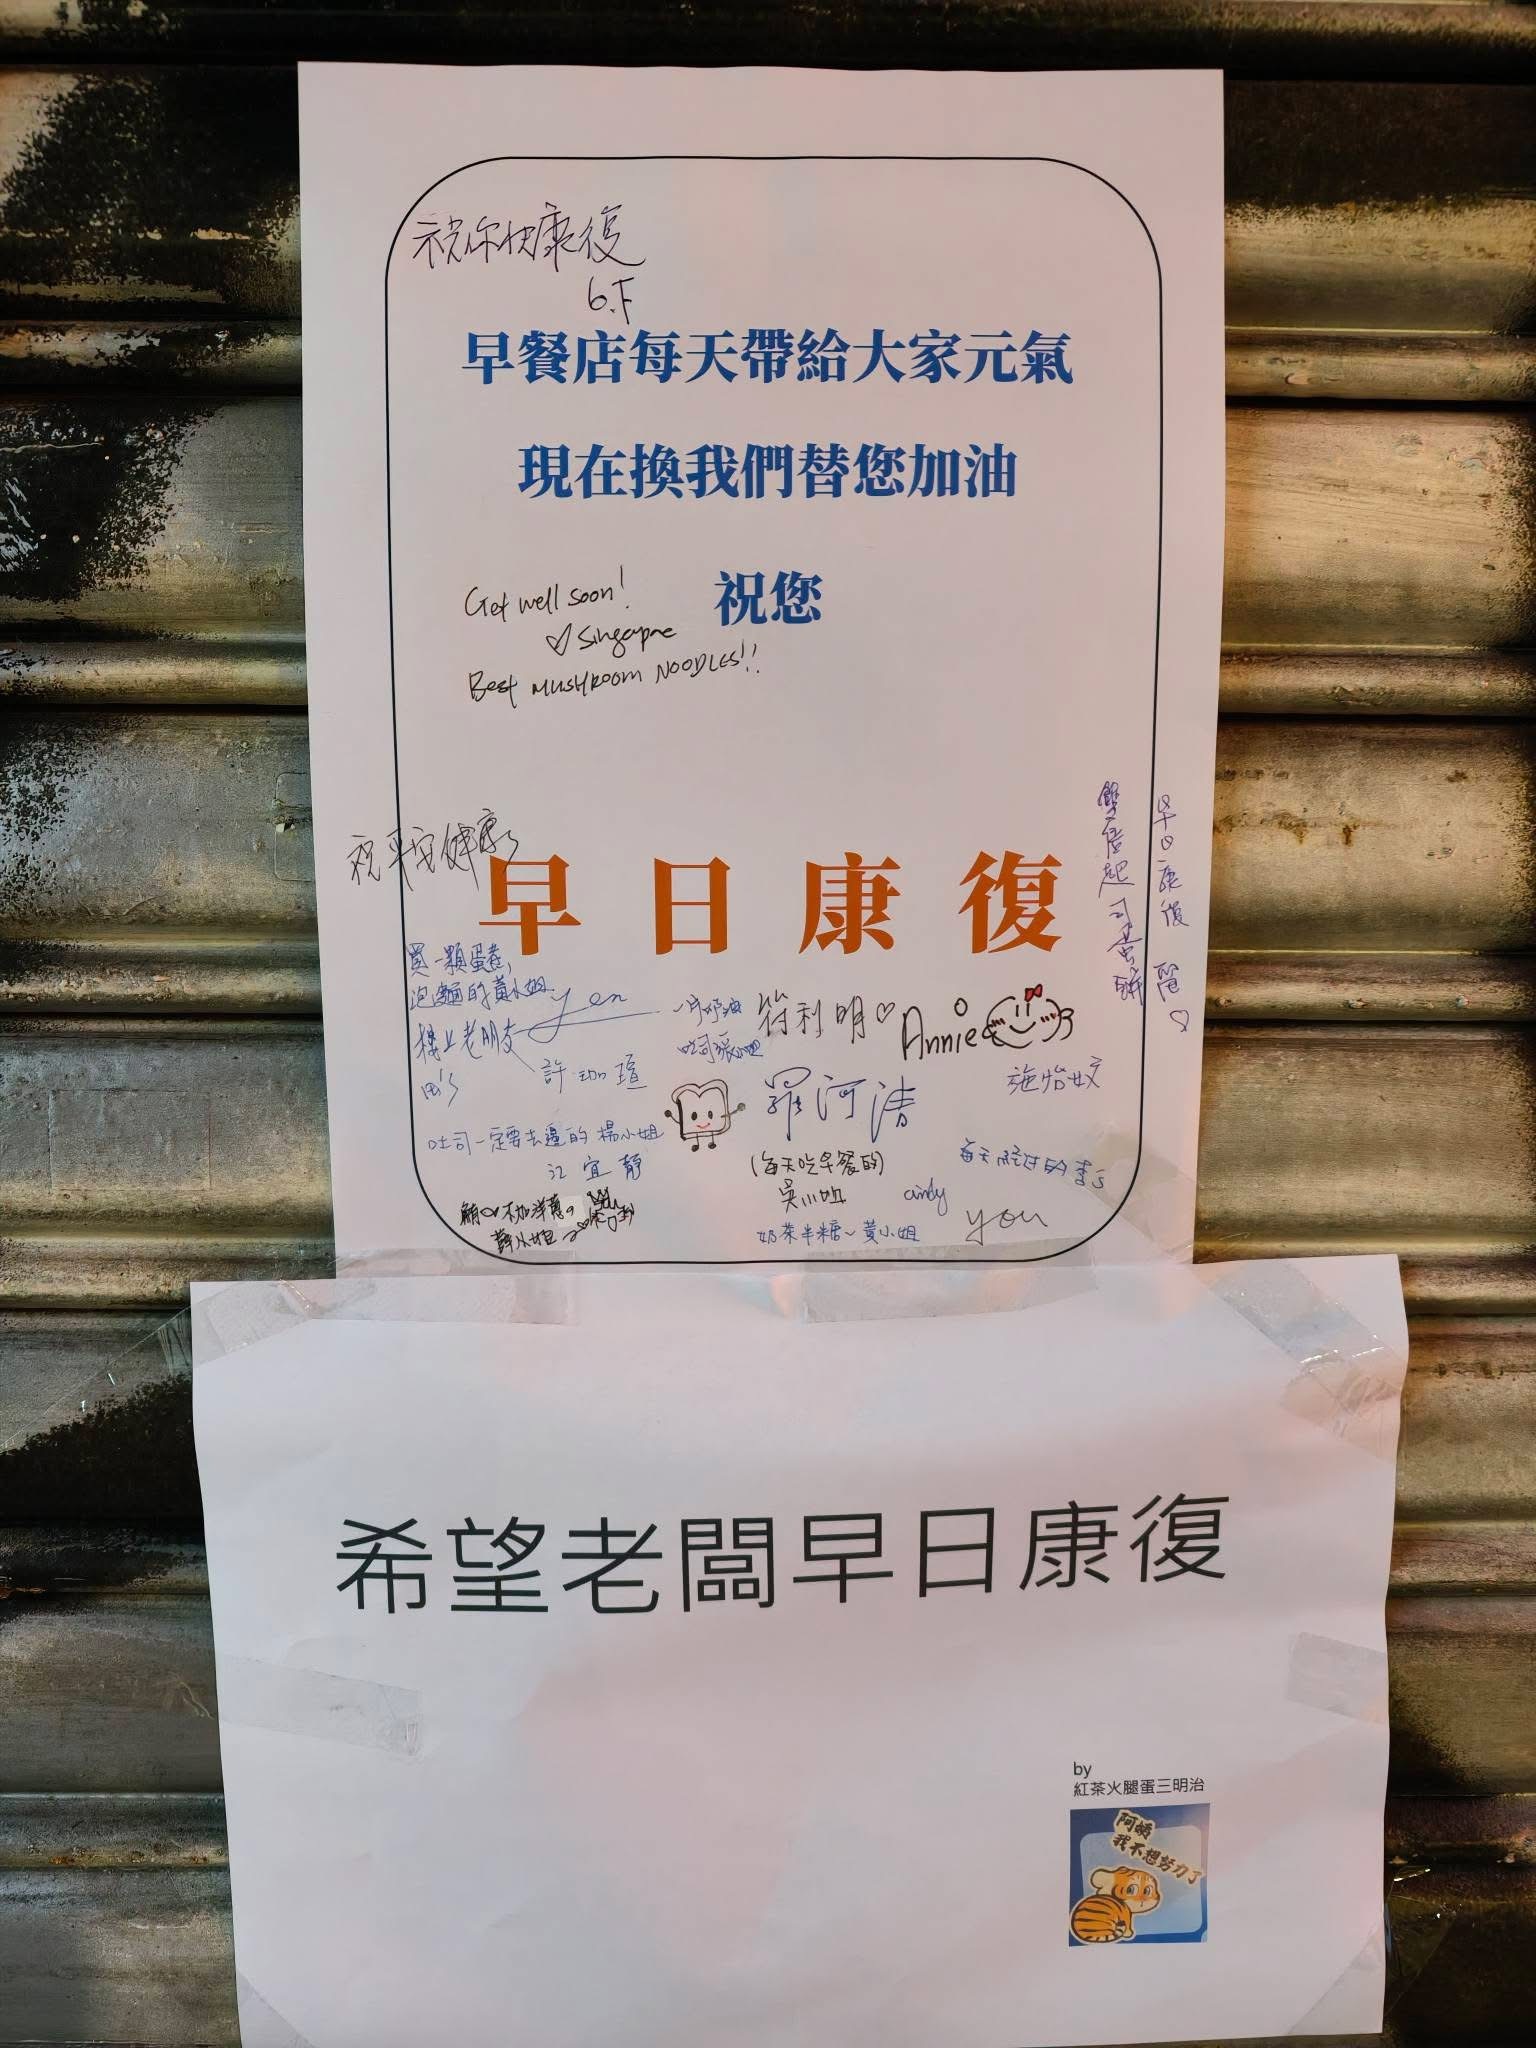 祝你快康復
6.F
早餐店每天帶給大家元氣
現在換我們替您加油
祝您
Get well soon!
♡ Singapore
Best MUSHROOM NOODLES!!
祝平安健康
早日康復
雙倍起司蛋餅
早日康復
買一顆蛋卷,
泡麵的黃小姐
yen
樓上老朋友
許
一片奶油
吐司張小姐
符利明♡
Annie
施怡妏
羅河清
吐司一定要去邊的楊小姐
江宜靜
(每天吃早餐的)
吳小姐
每天經過的李s
cindy
you
鮪 不加洋蔥
薛小姐
奶茶半糖~黃小姐
希望老闆早日康復
by
紅茶火腿蛋三明治
阿姨
我不想努力了